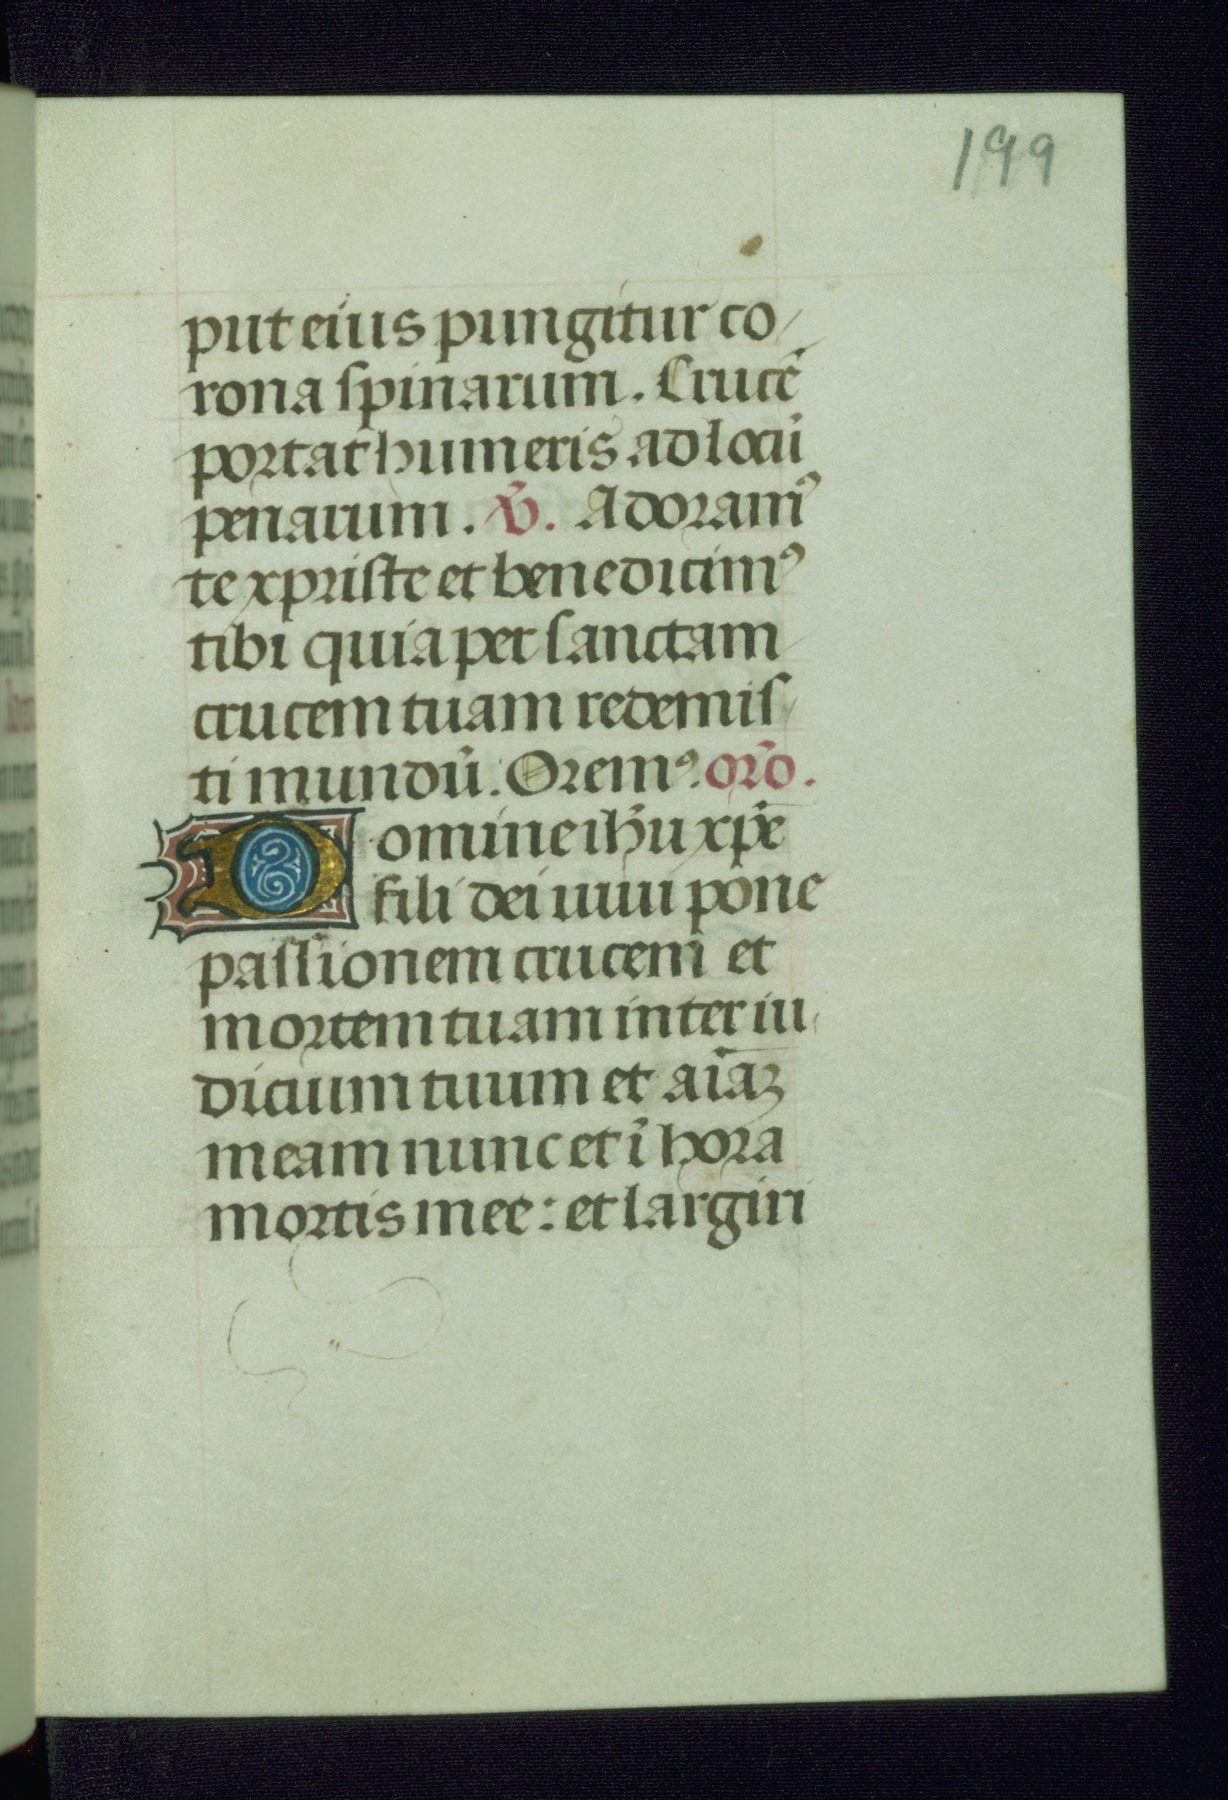 199
put eius pungitur co/
rona spinarum. Crucē
portat humeris ad locū
penarum. ℣. Adoramꝰ
te xpriste et benedicimꝰ
tibi quia per sanctam
crucem tuam redemis
ti mundū. Oremꝰ. orō.
Domine ihū xp̄e
fili dei uiui pone
passionem crucem et
mortem tuam inter iu
dicium tuum et aīaꝫ
meam nunc et ī hora
mortis mee: et largiri